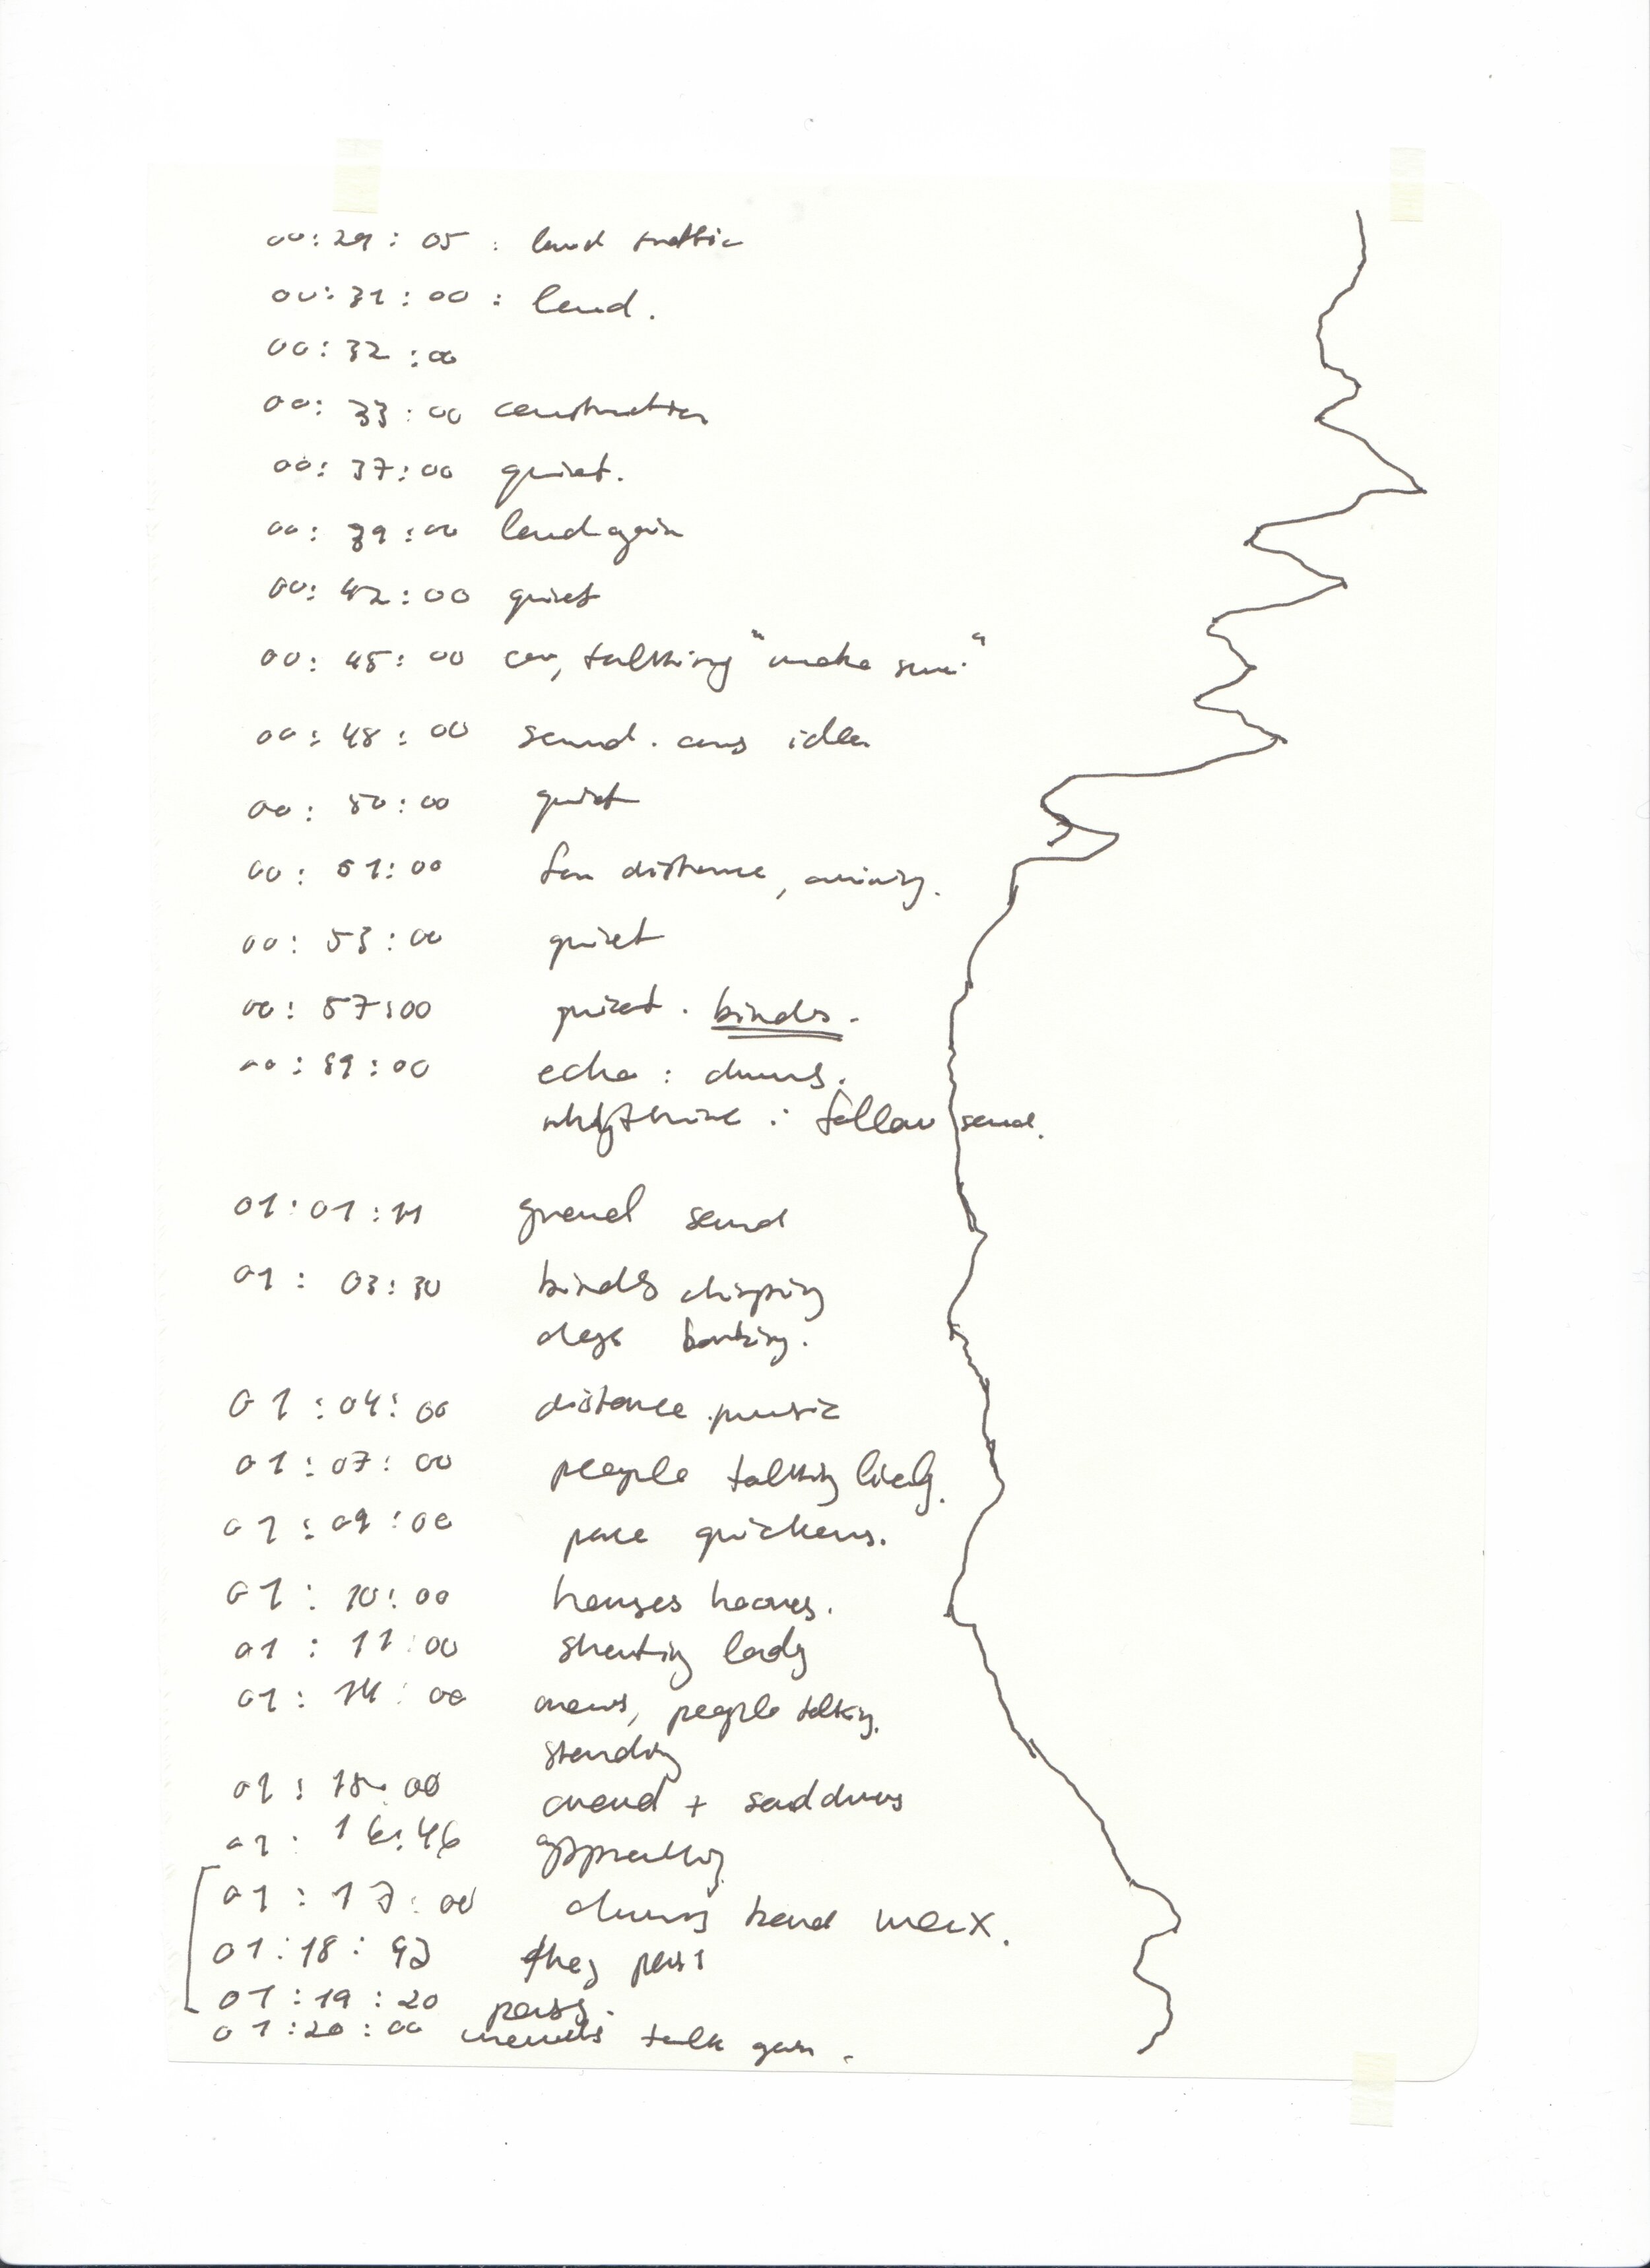 00:29:05: loud traffic
00:31:00: loud.
00:32:00
00:33:00 construction
00:37:00 quiet.
00:39:00 loud again
00:42:00 quiet
00:45:00 car, talking "make sure"
00:48:00 sound. cars idle
00:50:00 quiet
00:51:00 far distance,
00:53:00 quiet
00:57:00 quiet. birds.
00:59:00 echo: drums.
rhythmic: follow sound.
01:01:11 gravel sound
01:03:30 birds chirping
dogs barking.
01:04:00 distance music
01:07:00 people talking lively.
01:09:00 pace quickens.
01:10:00 horses hooves.
01:11:00 shouting lady
01:14:00 people talking.
standing
01:15:00 crowd +
01:16:46 approaching
01:17:00 drums band max.
01:18:43 they pass
01:19:20 pass.
01:20:00 crowds talk